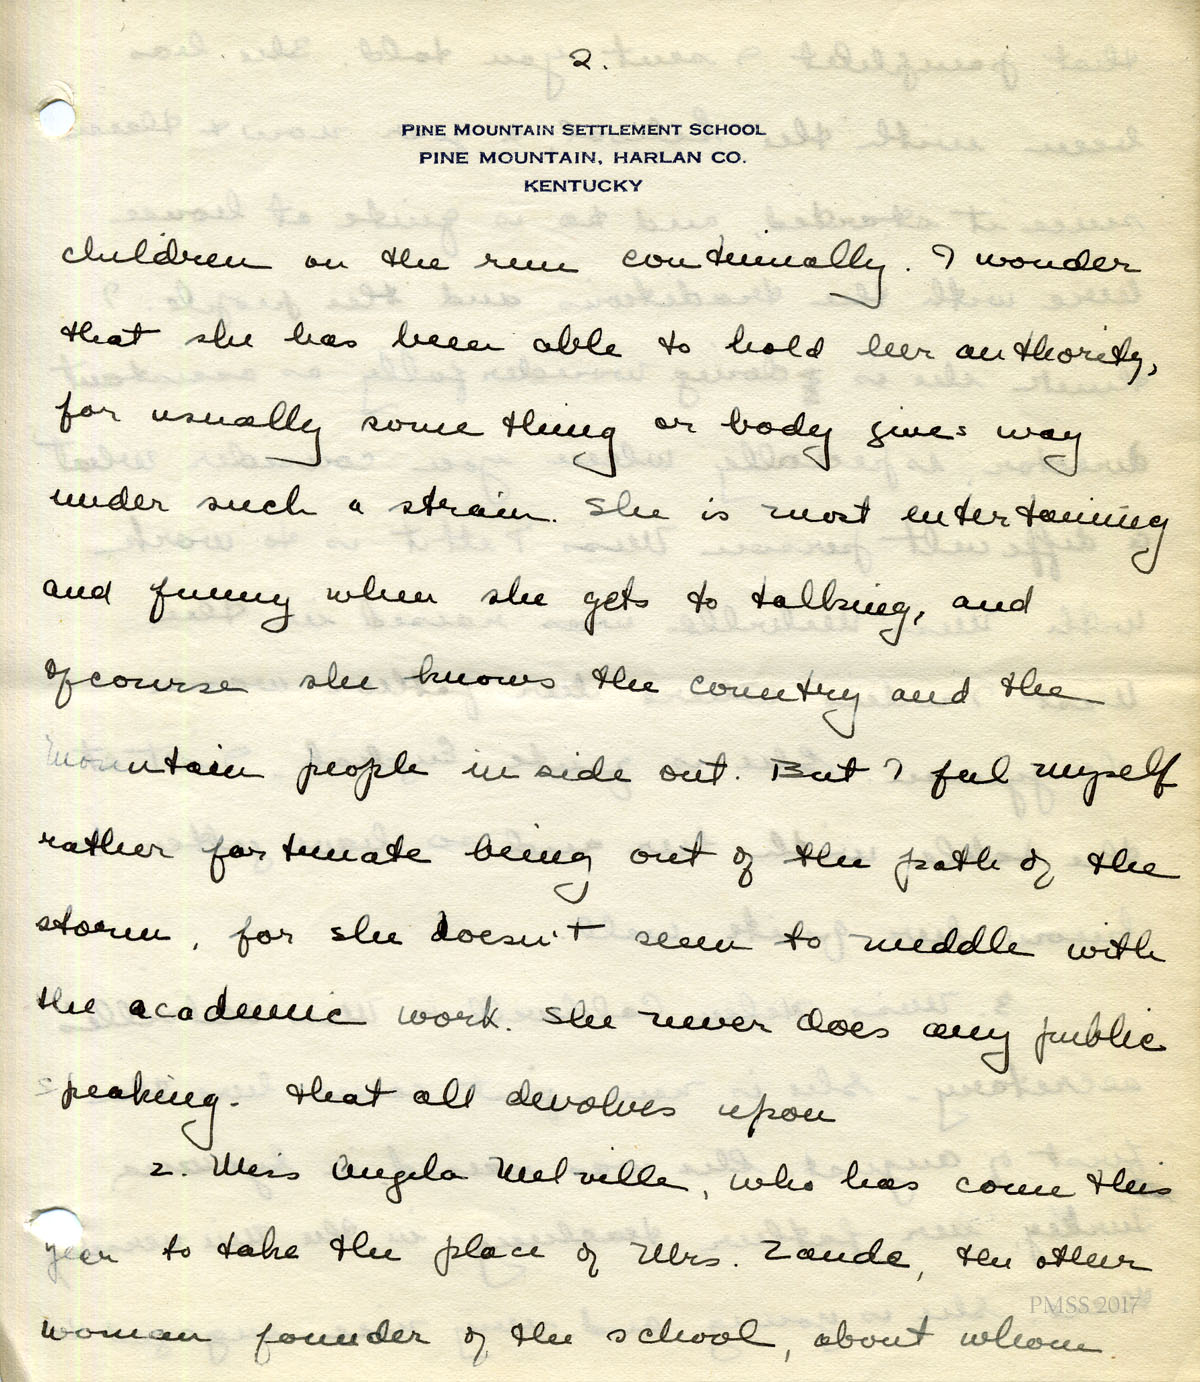 2.
PINE MOUNTAIN SETTLEMENT SCHOOL
PINE MOUNTAIN, HARLAN CO.
KENTUCKY
children on the run continually. I wonder
that she has been able to hold her authority,
for usually something or body gives way
under such a strain. She is most entertaining
and funny when she gets to talking, and
of course she knows the country and the
mountain people inside out. But I feel myself
rather fortunate being out of the path of the
storm, for she doesn't seem to meddle with
the academic work. She never does any public
speaking. That all devolves upon
2. Miss Angela Melville, who has come this
year to take the place of Mrs. Zande, the other
woman founder of the school, about whom
PMSS 2017